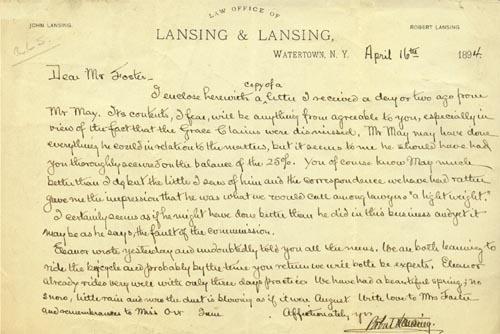 LAW OFFICE OF
JOHN LANSING.
ROBERT LANSING
LANSING & LANSING,
WATERTOWN, N. Y. April 16th 1894.
Dear Mr Foster-
copy of a
I enclose herewith a letter I received a day or two ago from
Mr May. Its contents, I fear, will be anything from agreeable to you, especially in
view of the fact that the Grace Claims were dismissed. Mr May may have done
everything he could in relation to the matter, but it seems to me he should have had
you thoroughly secured on the balance of the 25%. You of course know May much
better than I do, but the little I saw of him and the correspondence we have had rather
gave me the impression that he was what we would call among lawyers "a light weight".
I certainly seems as if he might have done better than he did in this business and yet it
may be as he says, the fault of the commission.
Eleanor wrote yesterday and undoubtedly told you all the news. We are both learning to
ride the bicycle and probably by the time you return we will both be experts. Eleanor
already rides very well with only three days practice. We have had a beautiful spring; no
snow, little rain and now the dust is blowing as if it were August. With love to Mrs Foster
and remembrances to Miss Orr I am Affectionately yrs
Robert Lansing.